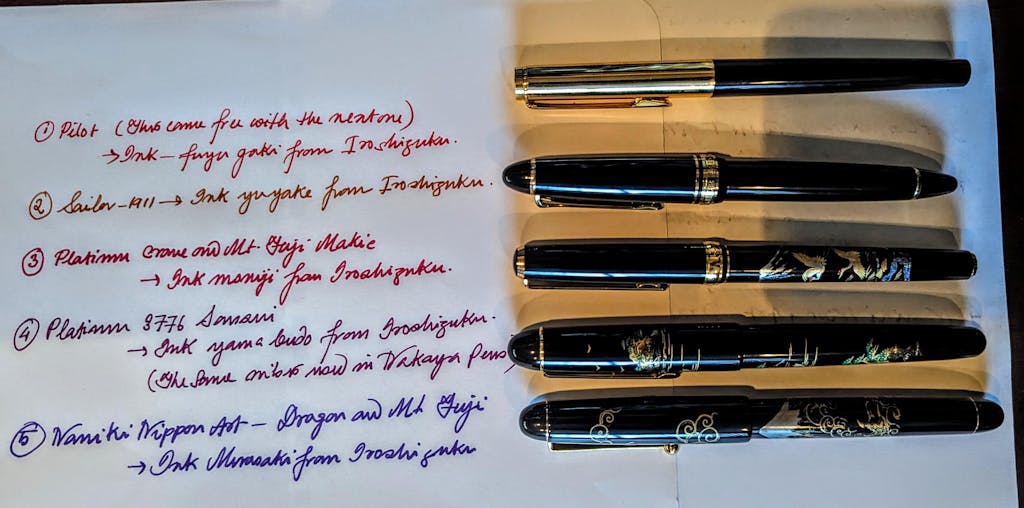 ① Pilot (This came free with the next one)
→ Ink – fuyu gaki from Iroshizuku.
② Sailor-1911 → Ink yuyake from Iroshizuku.
③ Platinum Crane and Mt. Fuji Makie
→ Ink momiji from Iroshizuku.
④ Platinum 3776 Sansui
→ Ink yama budo from Iroshizuku.
(The same nib is used in Nakaya Pens)
⑤ Namiki Nippon Art – Dragon and Mt Fuji
→ Ink Murasaki from Iroshizuku